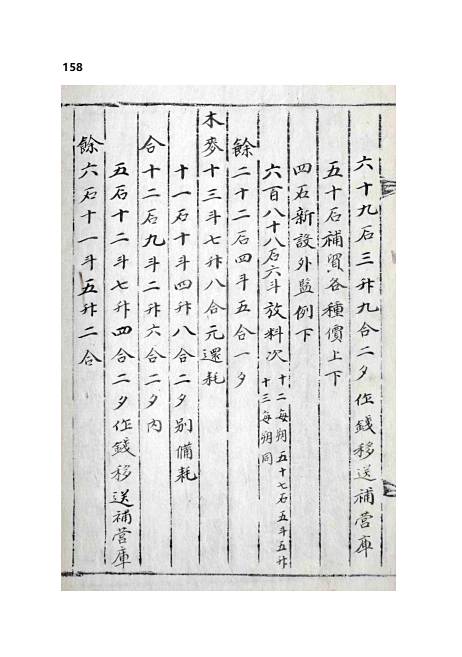 158
六十九石三升九合二夕作錢移送補營庫
五十石補買各種價上下
四石新設外監例下
六百八十八石六斗放料次 十二每朔五十七石五斗五升
十三每朔同
餘二十二石四斗五合一夕
木麥十三斗七升八合元還耗
十一石十斗四升八合二夕別備耗
合十二石九斗二升六合二夕內
五石十二斗七升四合二夕作錢移送補營庫
餘六石十一斗五升二合